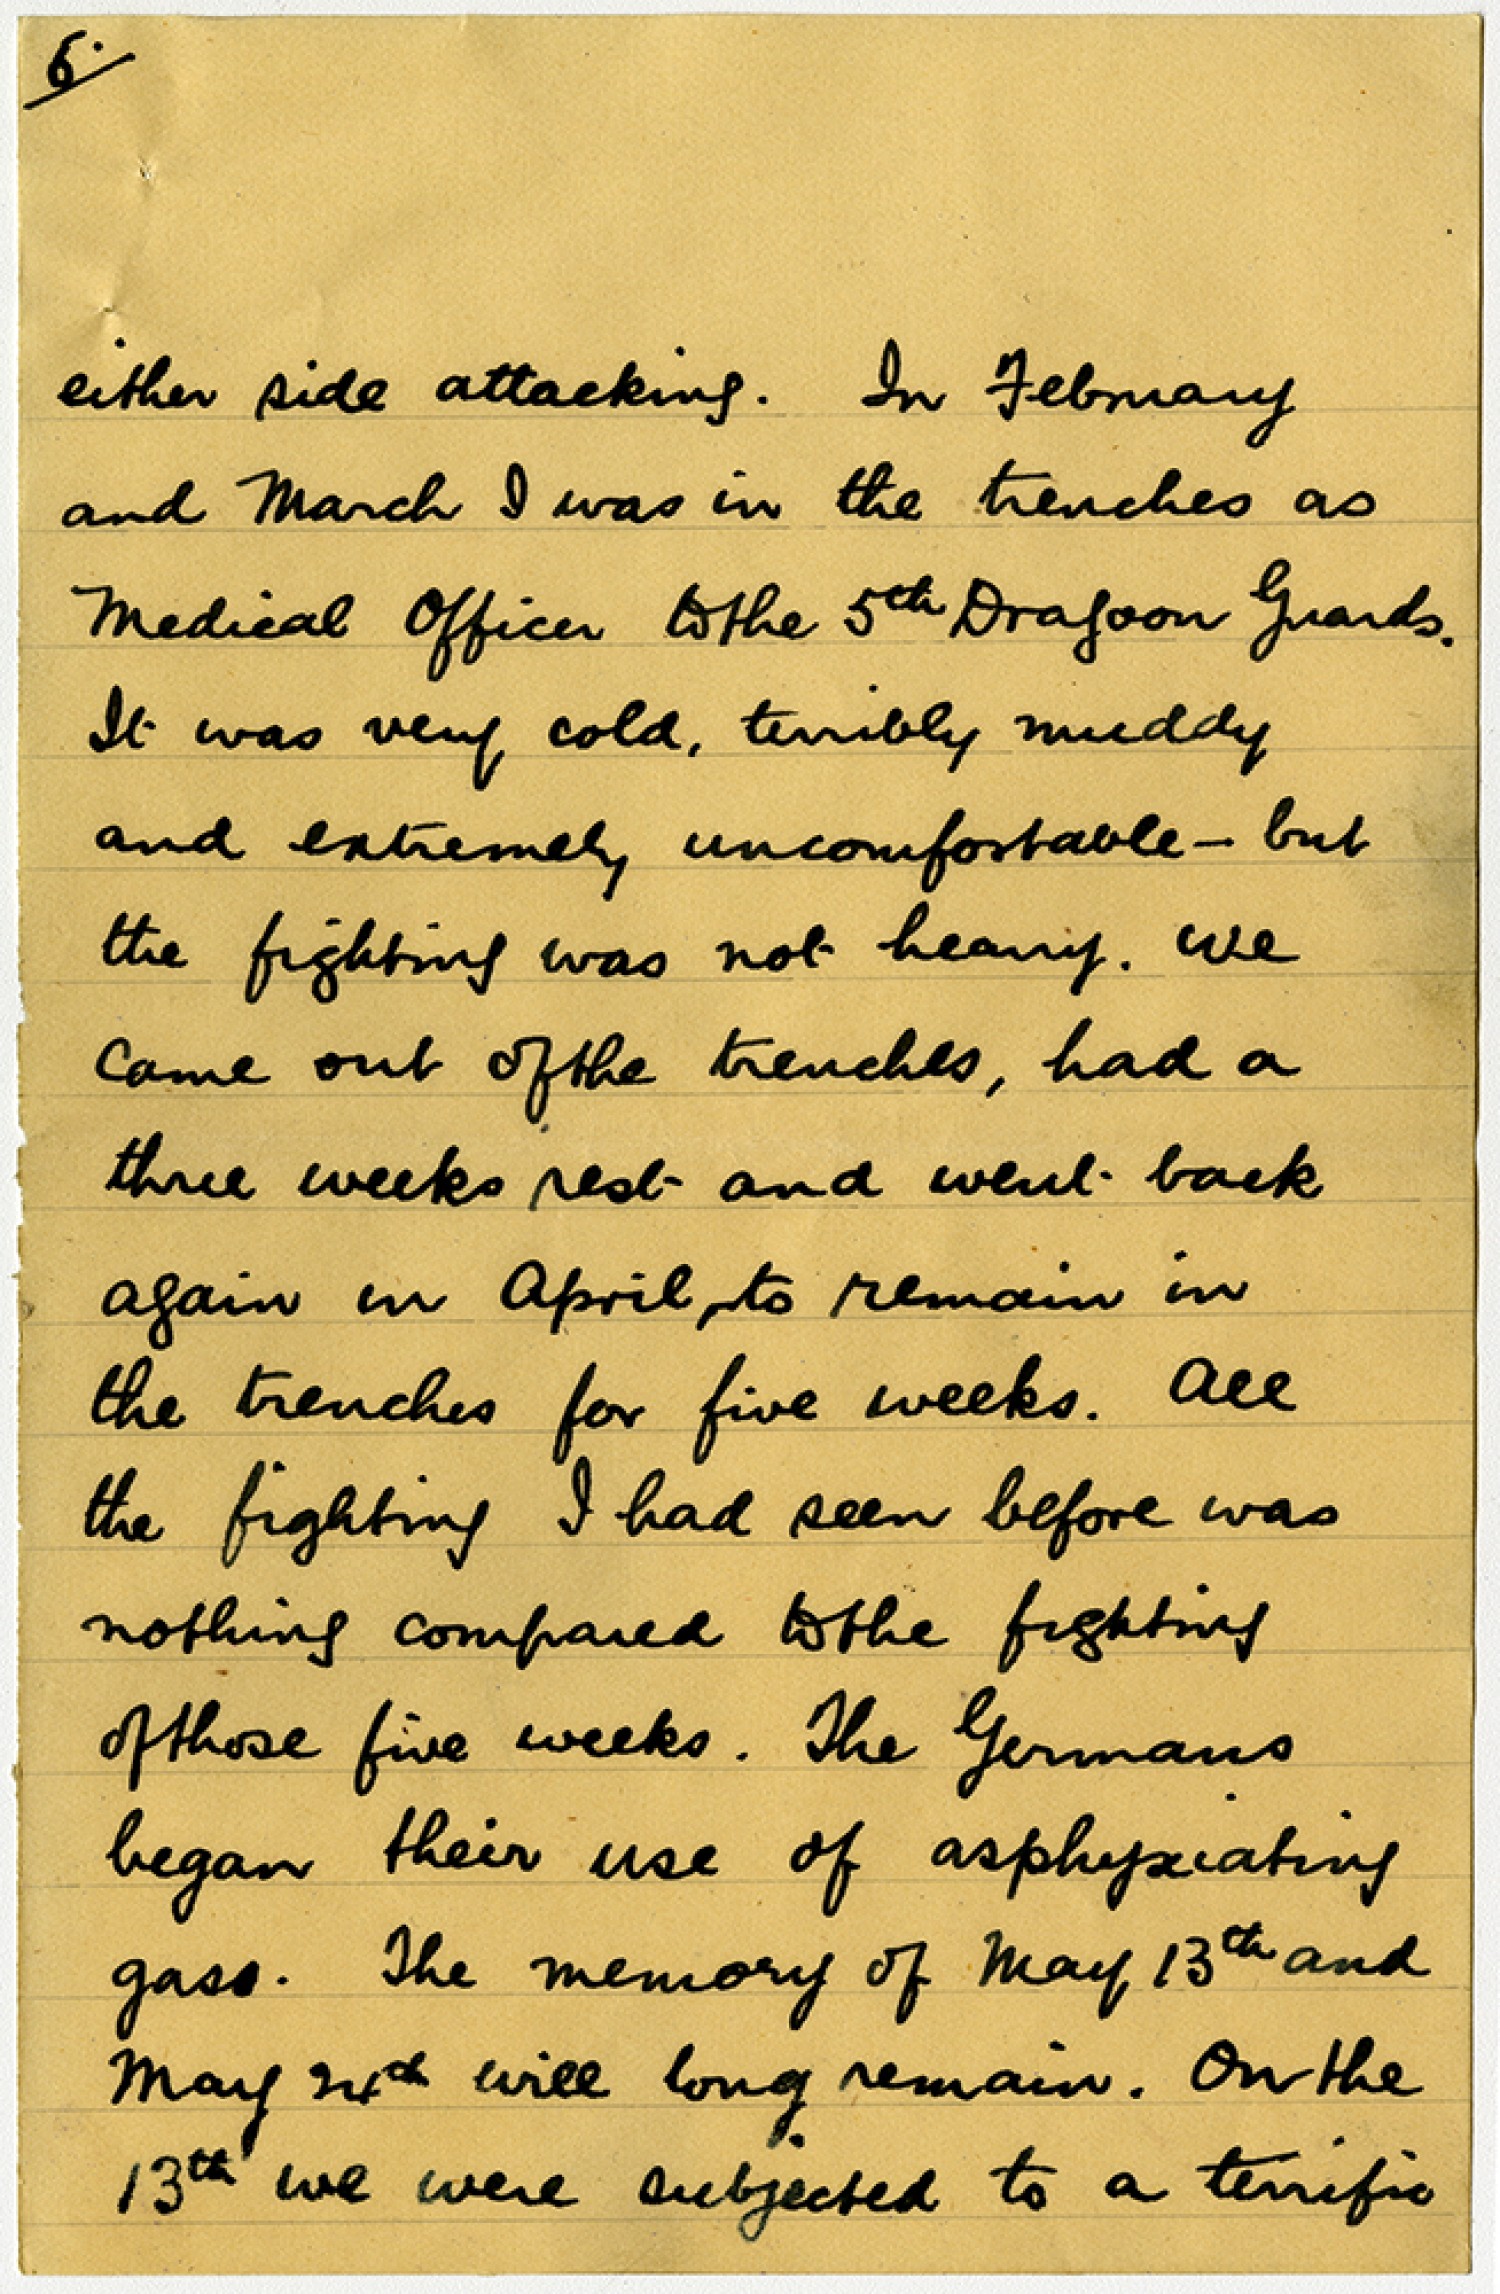 6.
either side attacking. In February
and March I was in the trenches as
Medical Officer to the 5th Dragoon Guards.
It was very cold, terribly muddy
and extremely uncomfortable – but
the fighting was not heavy. We
came out of the trenches, had a
three weeks rest and went back
again in April, to remain in
the trenches for five weeks. All
the fighting I had seen before was
nothing compared to the fighting
of those five weeks. The Germans
began their use of asphyxiating
gass. The memory of May 13th and
May 24th will long remain. On the
13th we were subjected to a terrific